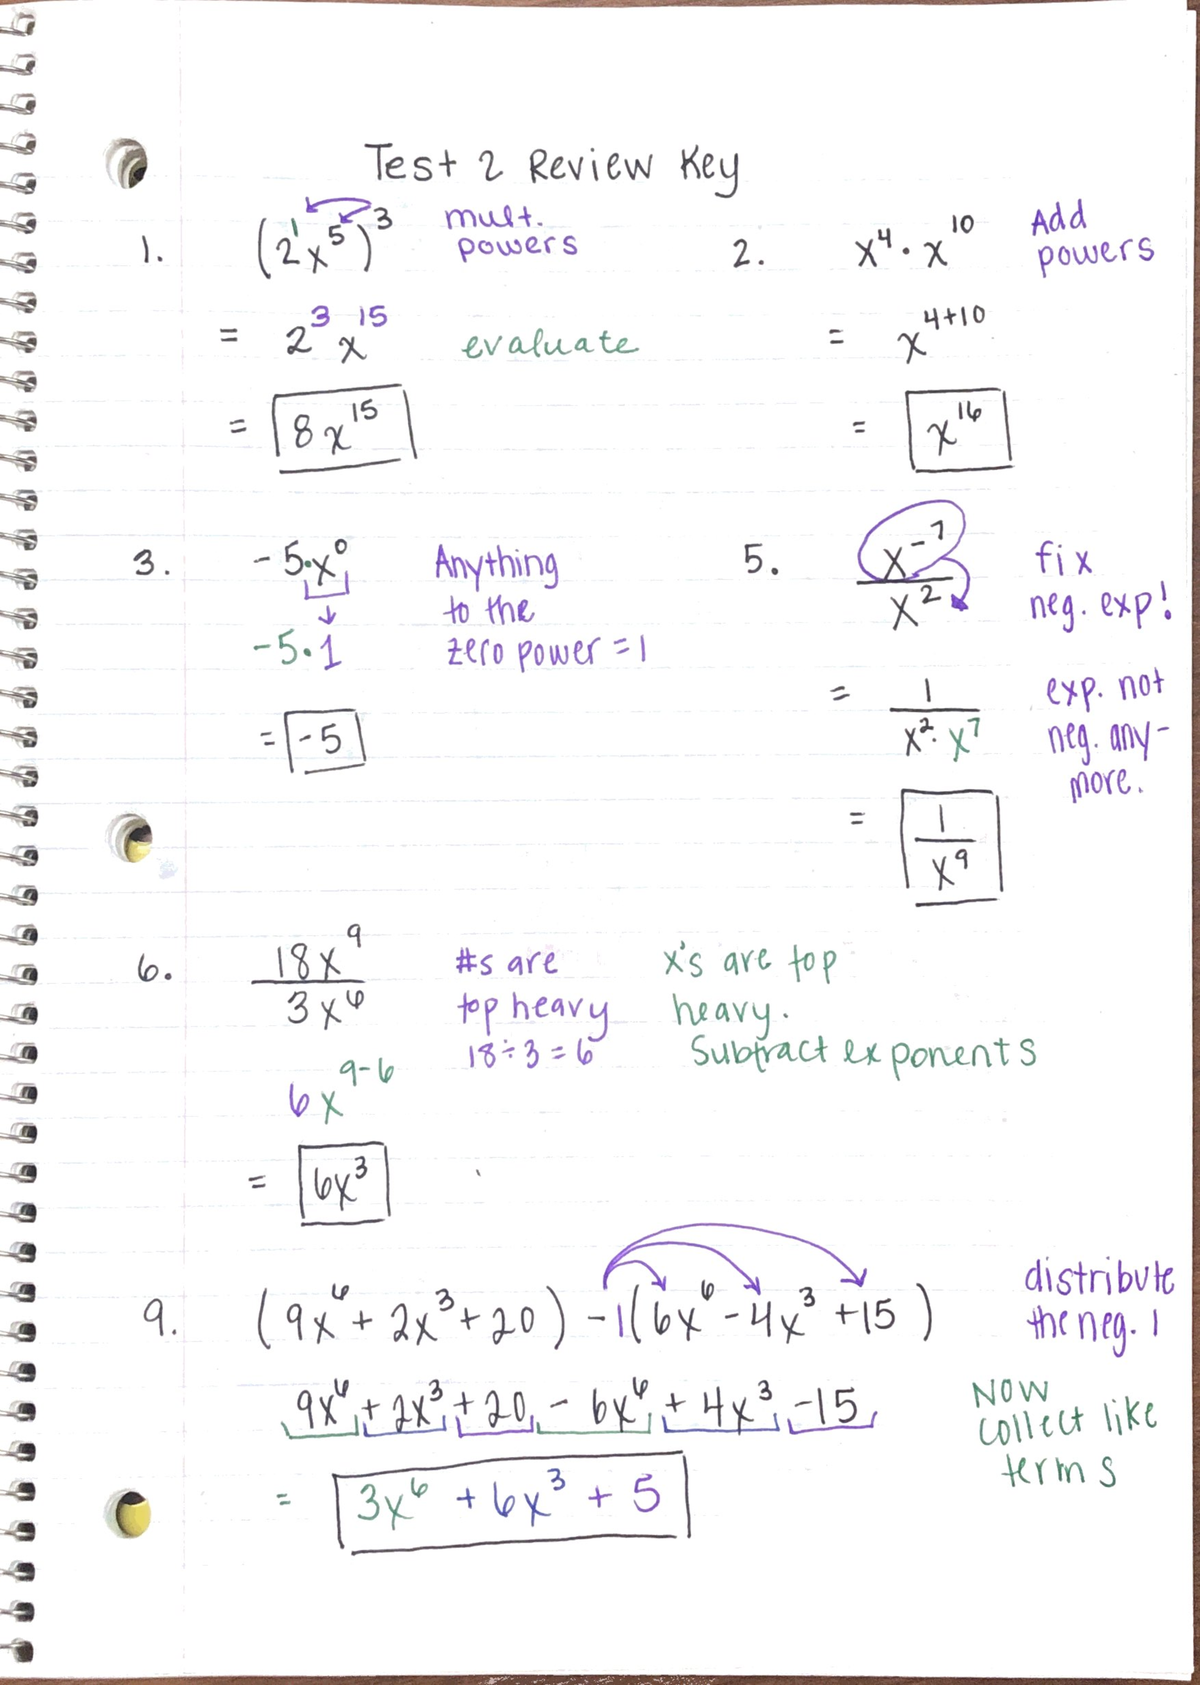 Test 2 Review Key
1. (2¹x⁵)³ mult. powers
= 2³x¹⁵ evaluate
= 8x¹⁵
2. x⁴ · x¹⁰ Add powers
= x⁴⁺¹⁰
= x¹⁶
3. -5·x⁰ Anything
to the
-5·1 zero power = 1
= -5
5. x⁻⁷/x² fix
neg. exp!
= 1/(x²·x⁷) exp. not
neg. any-
more.
= 1/x⁹
6. 18x⁹/3x⁶
#s are
top heavy
18÷3=6
x's are top
heavy.
Subtract exponents
6x⁹⁻⁶
= 6x³
9. (9x⁶+2x³+20) -1(6x⁶-4x³+15) distribute
the neg. 1
9x⁶+2x³+20-6x⁶+4x³-15 NOW
collect like
terms
= 3x⁶+6x³+5